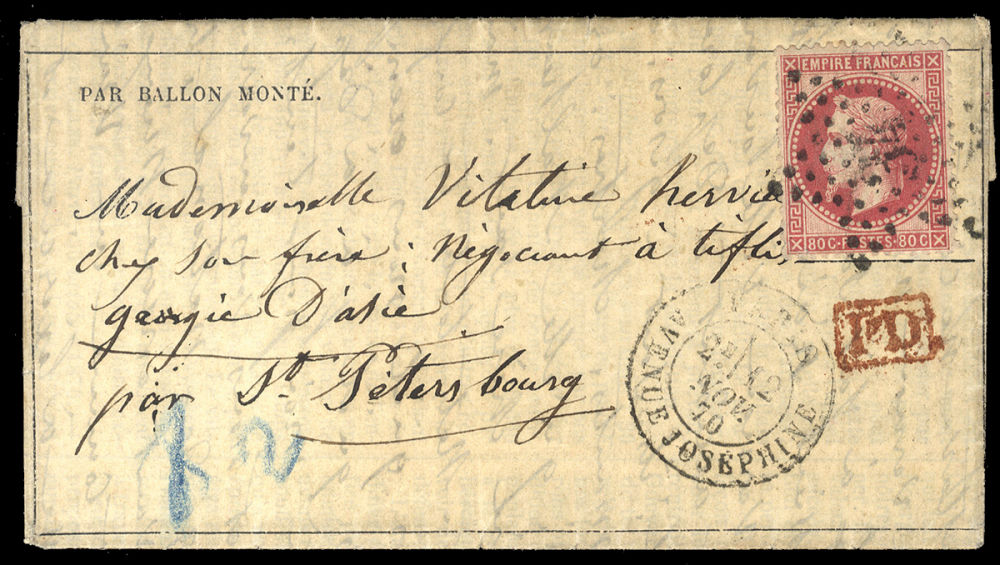 PAR BALLON MONTÉ.
EMPIRE FRANÇAIS
80 C · POSTES · 80 C
Mademoiselle Vitaline hervie
chez son frère : Négociant à tifli,
georgie D'asie
par St Pétersbourg
P.D.
PARIS
AVENUE JOSÉPHINE
NOV
70